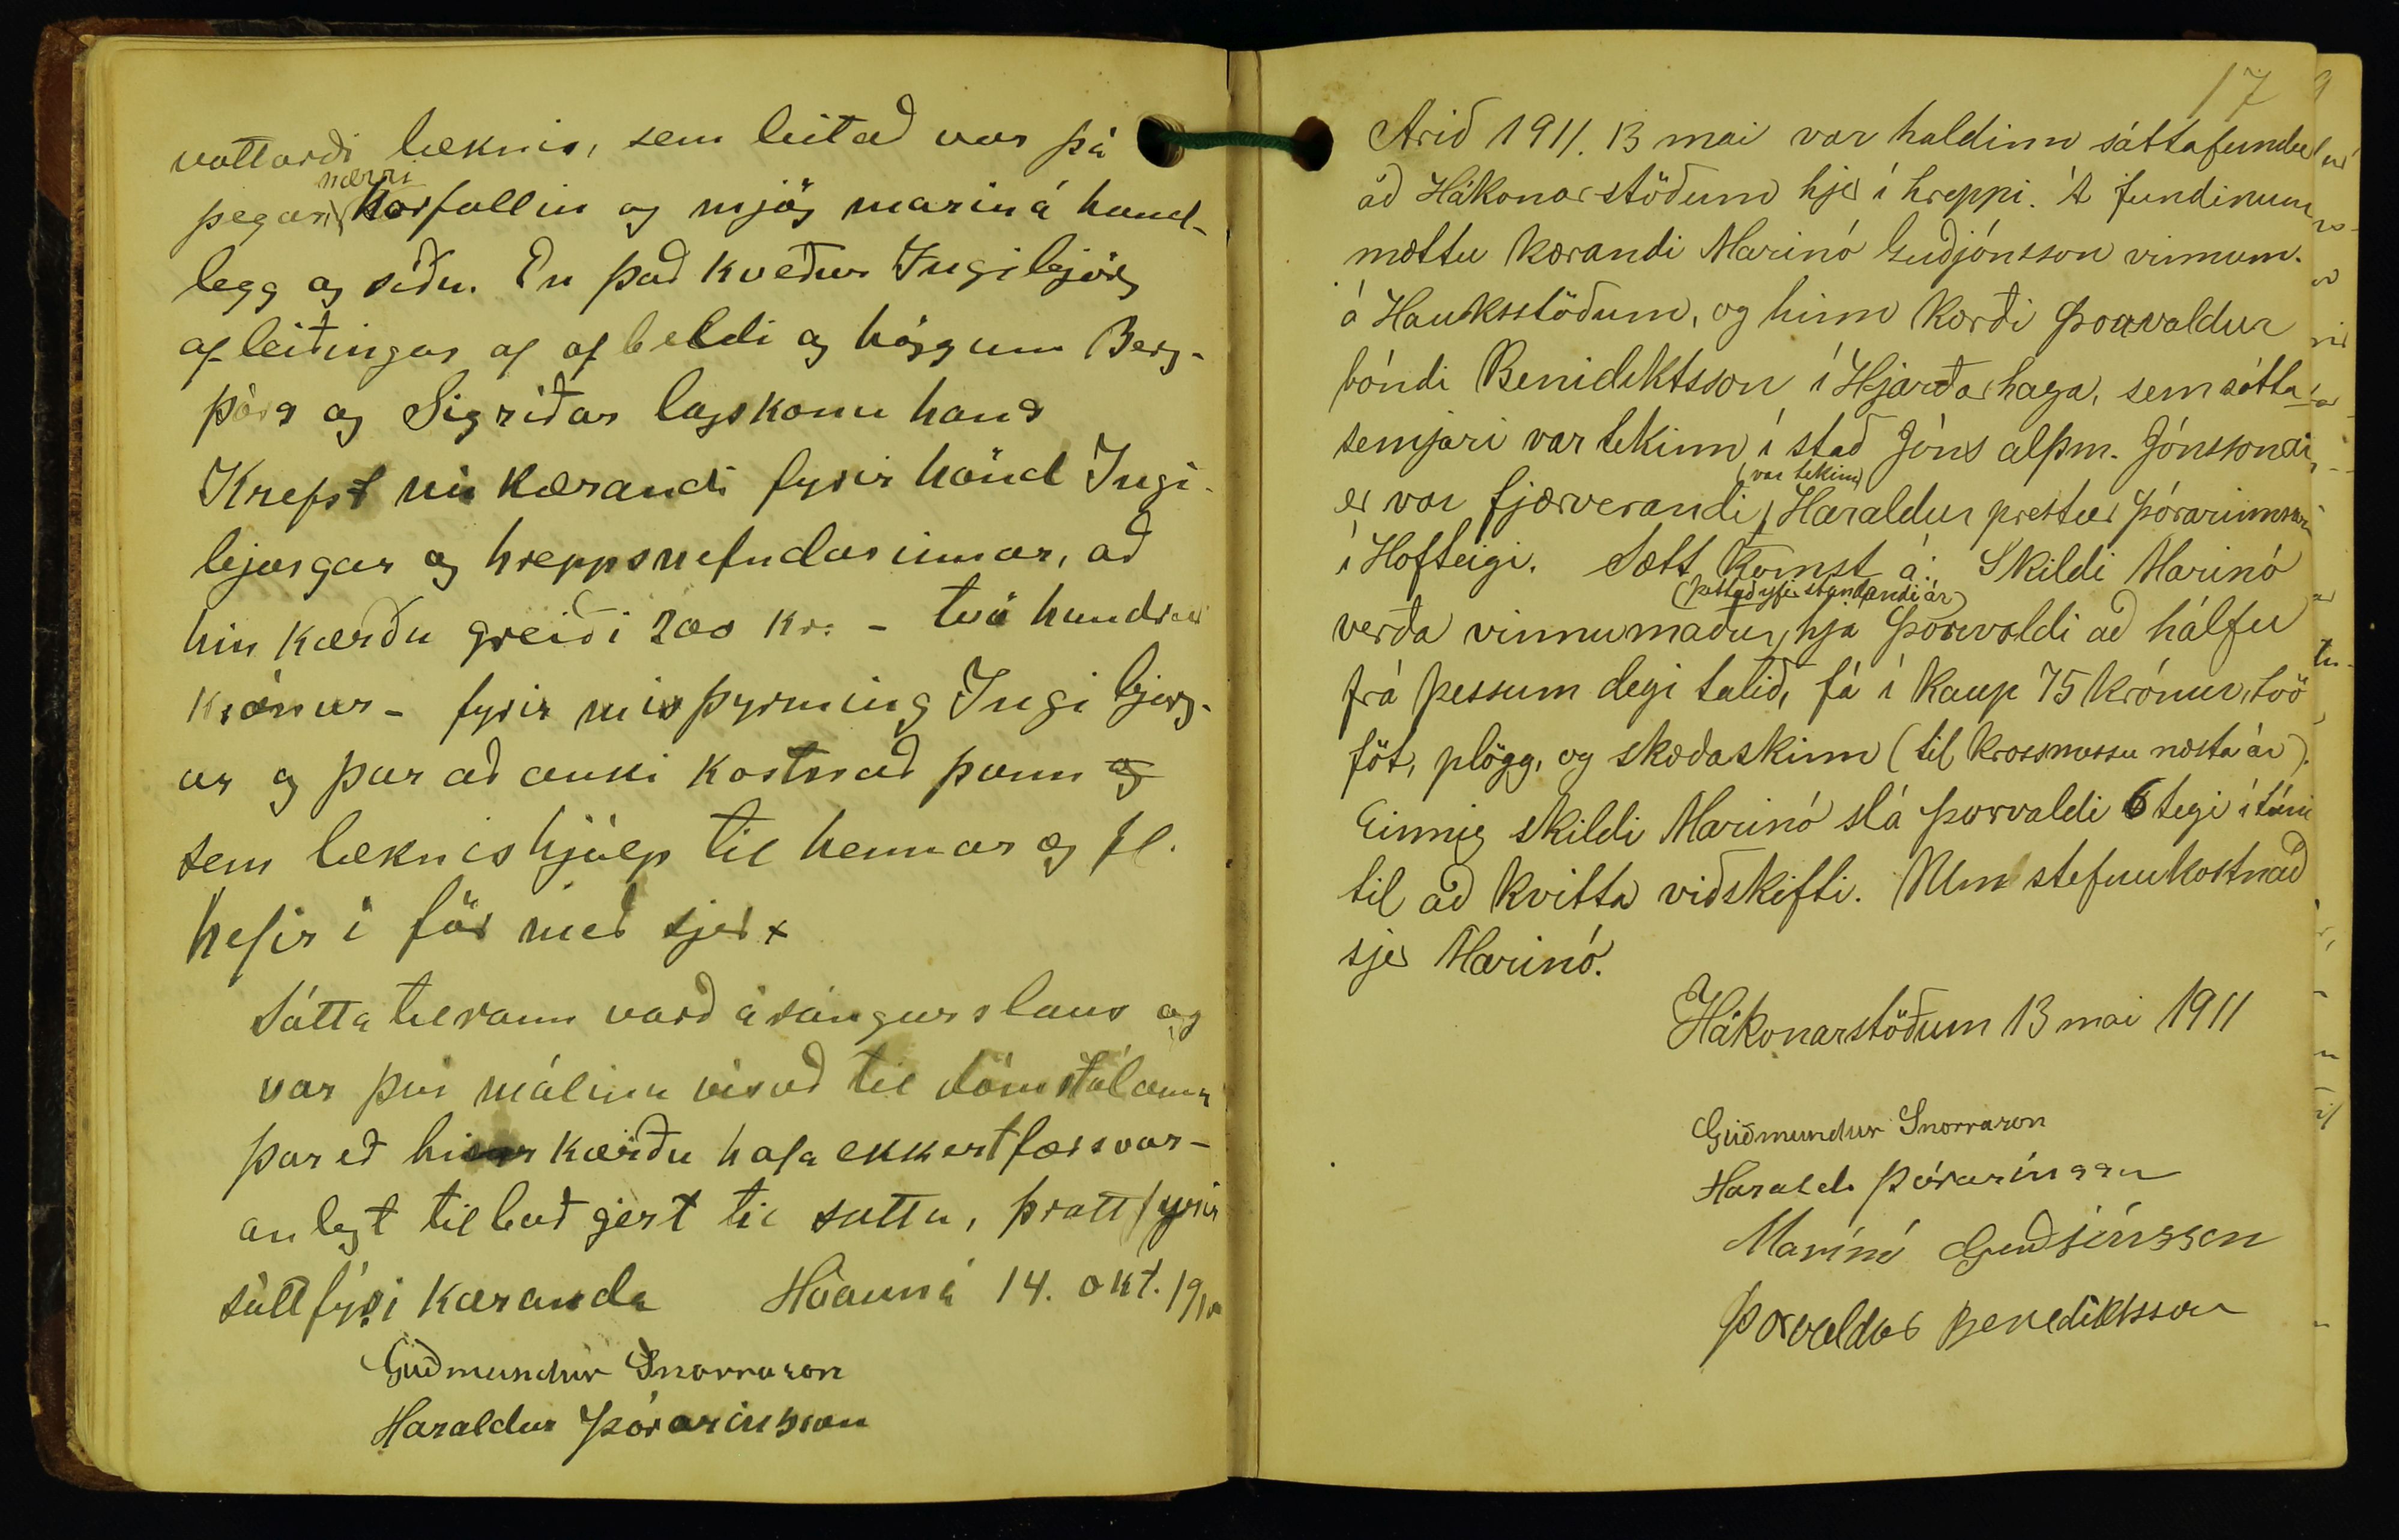 vottorði læknis, sem leitað var þá
þegar, nærri horfallin og mjög marin á hand-
legg og síðu. En það kveður Ingibjörg
afleiðingar af ofbeldi og höggum Berg-
þórs og Sigríðar lagskonu hans
Krefst nú kærandi fyrir hönd Ingi-
bjargar og hreppsnefndarinnar, að
hin kærðu greiði 200 kr. - tvö hundruð
krónur - fyrir misþyrming Ingibjarg-
ar og þar að auki kostnað þann og
sem læknishjálp til hennar og fl.
hefir í för með sjer x
Sáttatilraun varð árángurslaus og
var því málinu vísað til dómstólanna
þar eð hin kærðu hafa ekkert forsvar-
anlegt tilboð gert til sátta, þrátt fyrir
sáttfýsi kæranda Hvanná 14. okt. 1910
Guðmundur Snorrason
Haraldur Þórarinsson
17
Árið 1911. 13 mai var haldinn sáttafundur
að Hákonarstöðum hjer í hreppi. Á fundinum
mættu kærandi Marinó Guðjónsson vinnum.
á Hauksstöðum, og hinn kærði Þorvaldur
bóndi Benidiktsson í Hjarðarhaga, sem sátta-
semjari var tekinn í stað Jóns alþm. Jónssonar
er var fjærverandi, (var tekinn) Haraldur prestur Þórarinsson
í Hofteigi. Sætt komst á: Skildi Marinó
verða vinnumaður, (þettað yfirstandandi ár) hja Þorvaldi að hálfu
frá þessum degi talið, fá í kaup 75 krónur, tvö
föt, plögg, og skæðaskinn (til krossmessu næsta ár).
Einnig skildi Marinó slá Þorvaldi 6 tegi í túni
til að kvitta viðskifti. Um stefnukostnað
sjer Marinó.
Hákonarstöðum 13 mai 1911
Guðmundur Snorrason
Harald. Þórarinsson
Marínó Guðjónsson
Þorvaldur Benediktsson